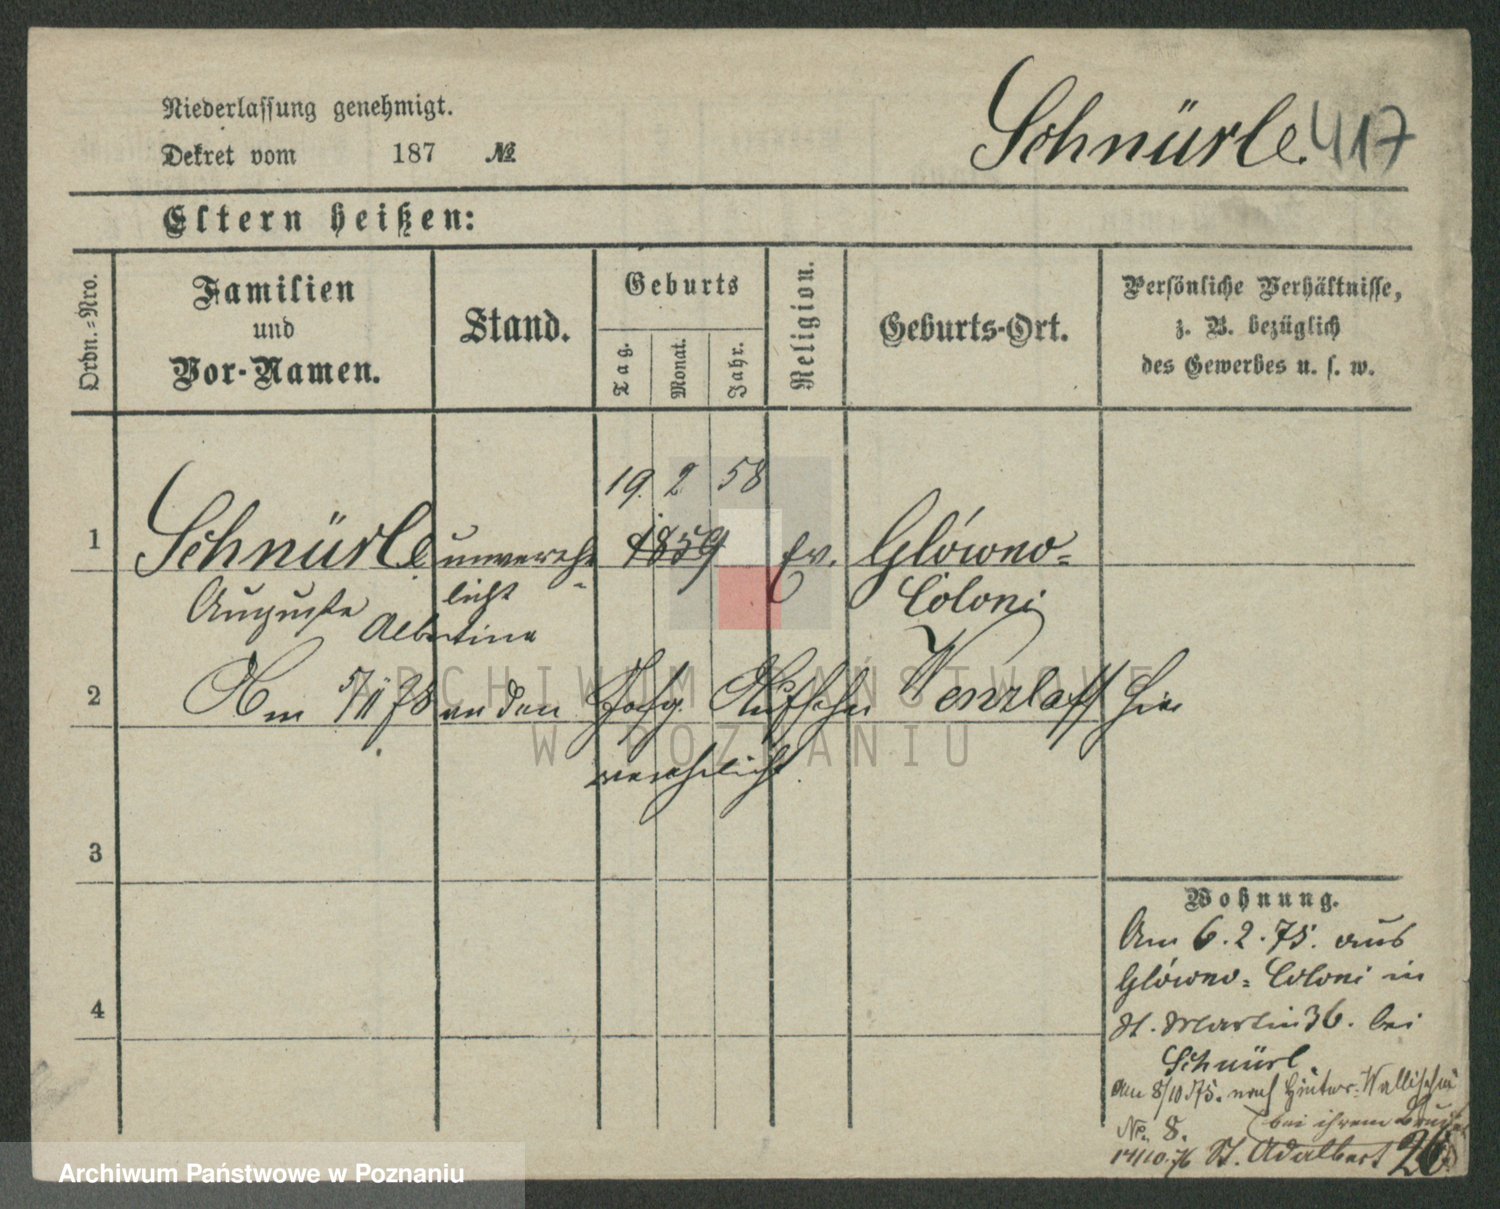 Niederlassung genehmigt.
Dekret vom 187 №
Schnürle. 417
Eltern heißen:
Ordn.-Nro.
Familien
und
Vor-Namen.
Stand.
Geburts
Tag.
Monat.
Jahr.
Religion.
Geburts-Ort.
Persönliche Verhältnisse,
z. B. bezüglich
des Gewerbes u. s. w.
19. 2 58
1 Schnürle unverehe- 1859 Ev. Glówno-
Auguste licht Coloni
Albertine
2 Am 5/11 78 an den Aufseher Wenzlaff hier
verehelicht.
3
4
Wohnung.
Am 6.2.75. aus
Glówno-Coloni in
St. Martin 36. bei
Schnürl
am 8/10 75. nach Hinter-Wallischei
No. 8. (bei ihrem Bruder)
14/10.76 St. Adalbert 26
ARCHIWUM PAŃSTWOWE
W POZNANIU
Archiwum Państwowe w Poznaniu